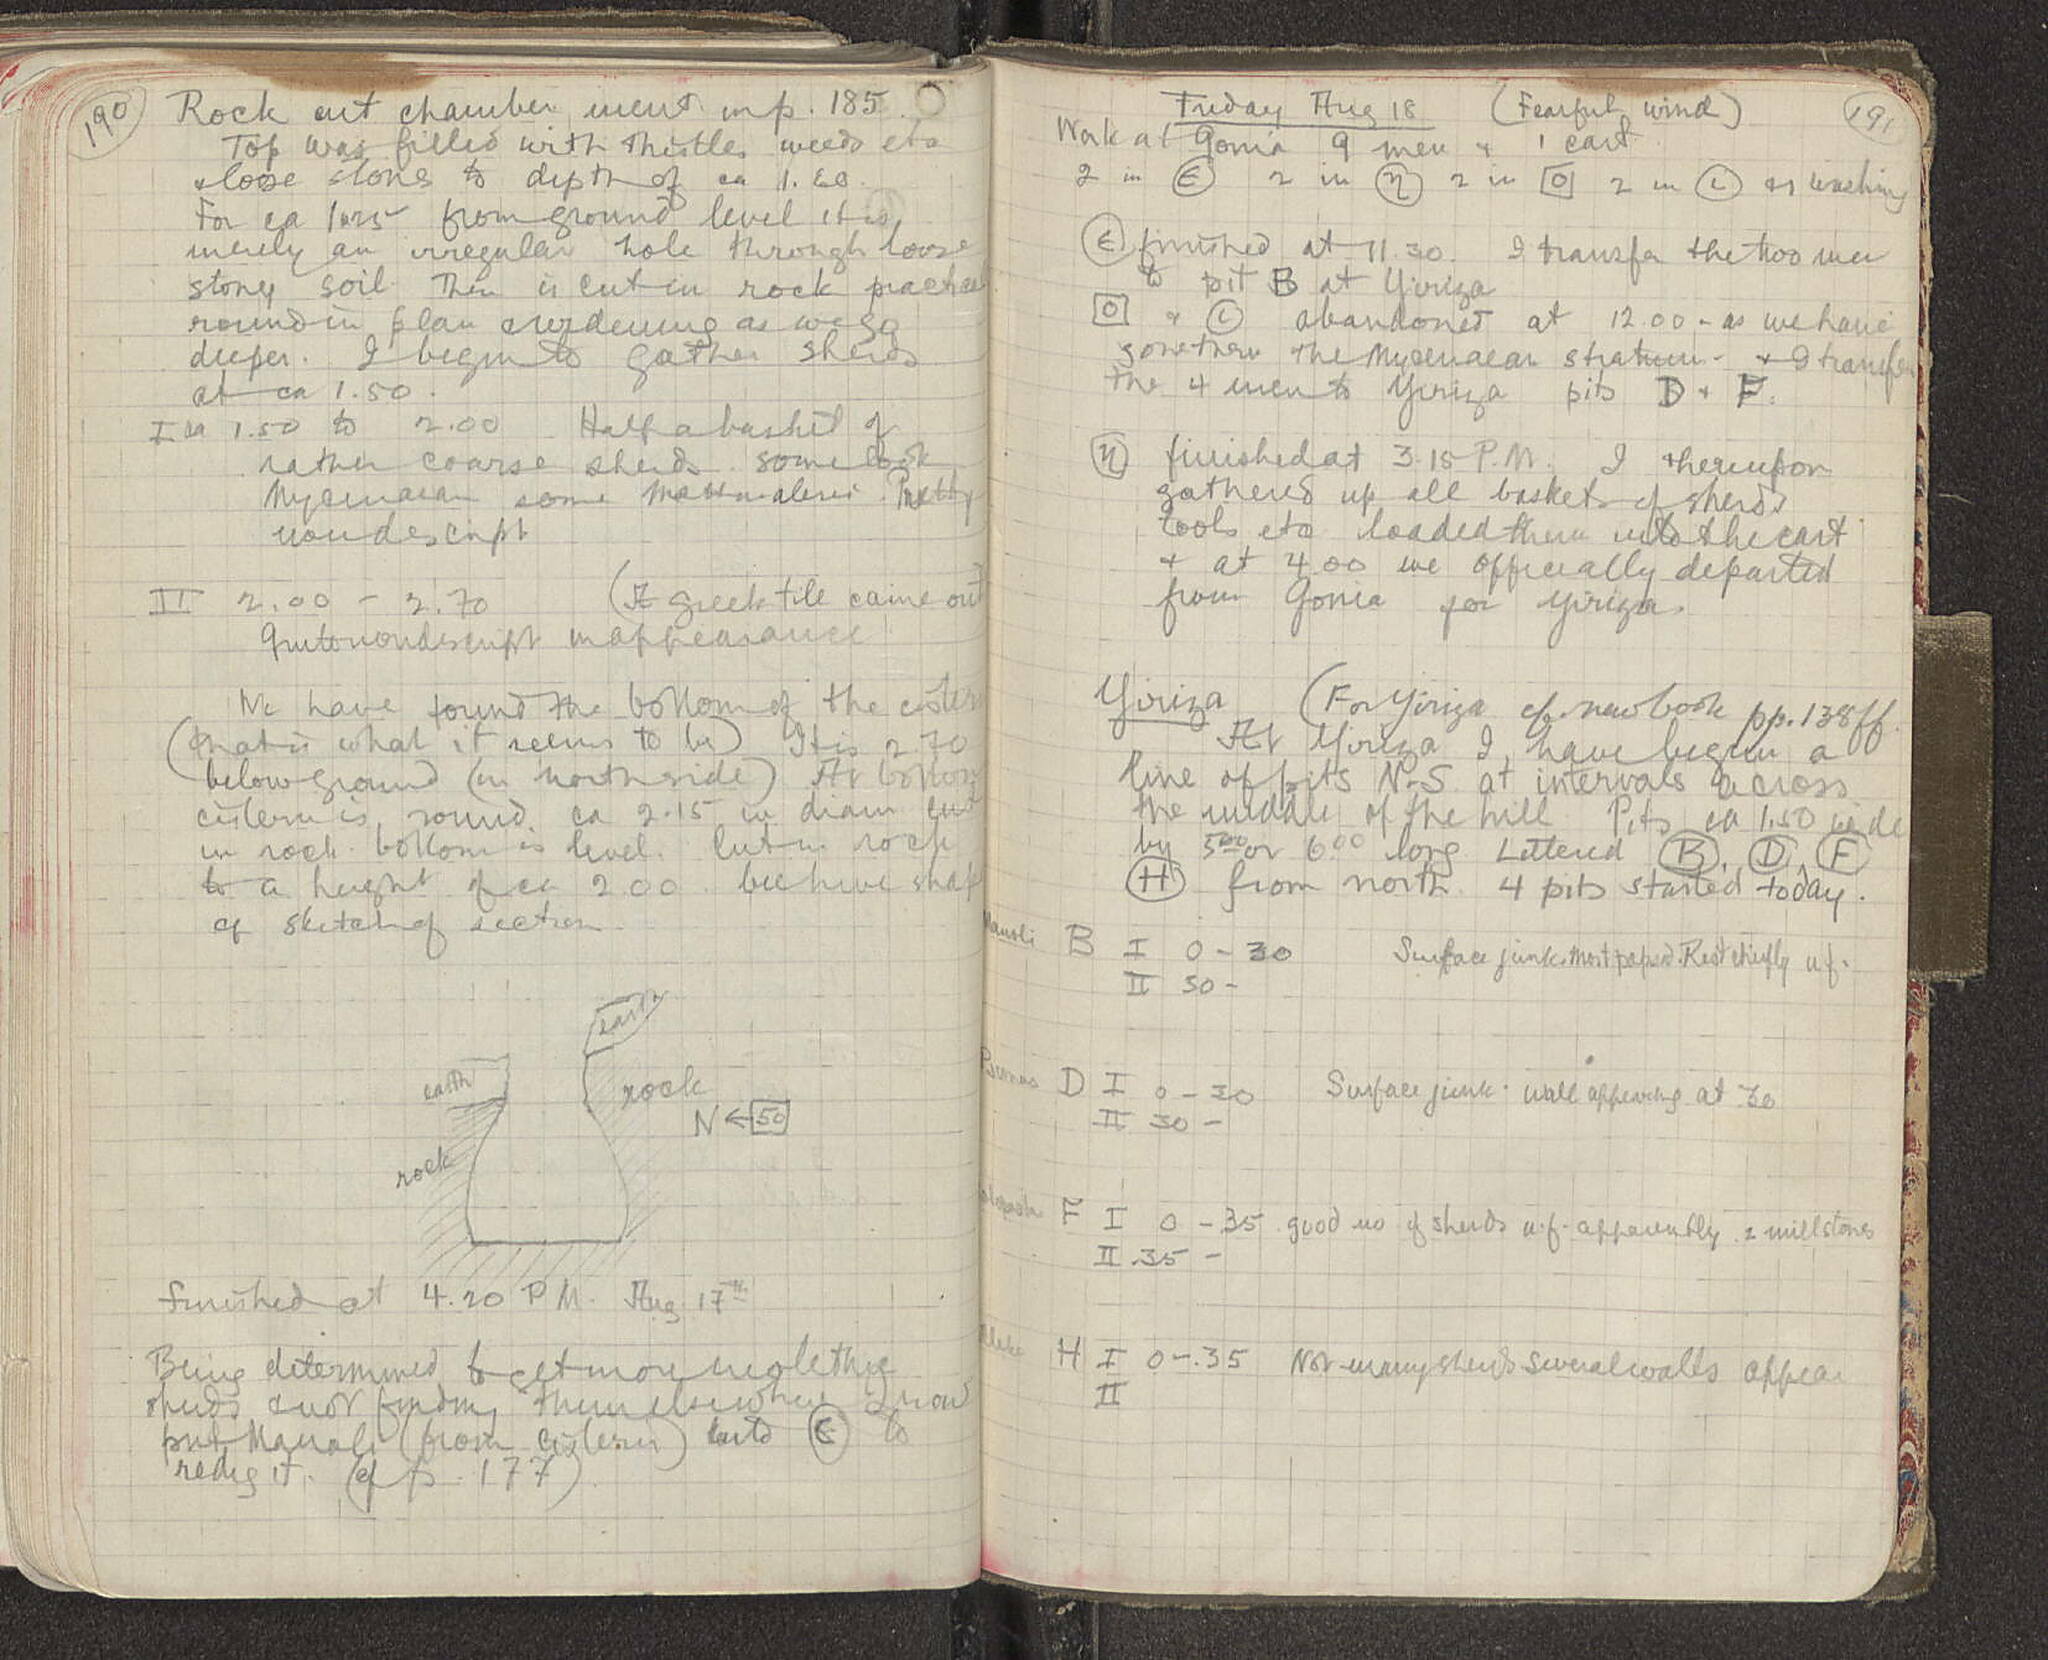 190
Rock cut chamber ment. in p. 185
Top was filled with thistles weeds etc
& loose stones to depth of ca 1.60.
For ca 1m25 from ground level it is
merely an irregular hole through loose
stony soil. Then is cut in rock practical
round in plan & widening as we go
deeper. I begin to gather sherds
at ca 1.50.
I ca 1.50 to 2.00 Half a basket of
rather coarse sherds. some look
Mycenaean some Mattmalerei. Pretty
nondescript
II 2.00 - 2.70 (A Greek tile came out
Quite nondescript in appearance
We have found the bottom of the cistern
(that is what it seems to be) It is 2.70
below ground (on north side) At bottom
cistern is round ca 2.15 in diam cut
in rock. bottom is level. Cut in rock
to a height of ca 2.00. beehive shap
cf sketch of section
earth
earth
rock
N ← 50
rock
Finished at 4.20 P.M. Aug 17th
Being determined to get more neolithic
sherds & not finding them elsewhere I now
put Manoli (from cistern) into ε to
redig it. (cf p. 177)
191
Friday Aug 18 (Fearful wind)
Work at Gonia 9 men & 1 cart
2 in ε 2 in η 2 in O 2 in ι & 1 washing
ε finished at 11.30. I transfer the two men
to pit B at Yiriza
O & ι abandoned at 12.00 - as we have
gone thru the Mycenaean stratum - & I transfer
the 4 men to Yiriza pits D & F.
η finished at 3.15 P.M. I thereupon
gathered up all baskets of sherds
tools etc loaded them into the cart
& at 4.00 we officially departed
from Gonia for Yiriza.
Yiriza (For Yiriza cf. new book pp. 138ff.
At Yiriza I have begun a
line of pits N-S at intervals across
the middle of the hill Pits ca 1.50 wide
by 5.00 or 6.00 long Lettered B, D, F
H from north. 4 pits started today.
Manoli B I 0 - 30 Surface junk. Most papsed. Rest chiefly u.f.
II 30 -
D I 0 - 30 Surface junk. wall appearing at 30
II 30 -
F I 0 - 35 good no of sherds u.f. apparently 2 millstones
II .35 -
H I 0 - .35 Not many sherds several walls appear
II